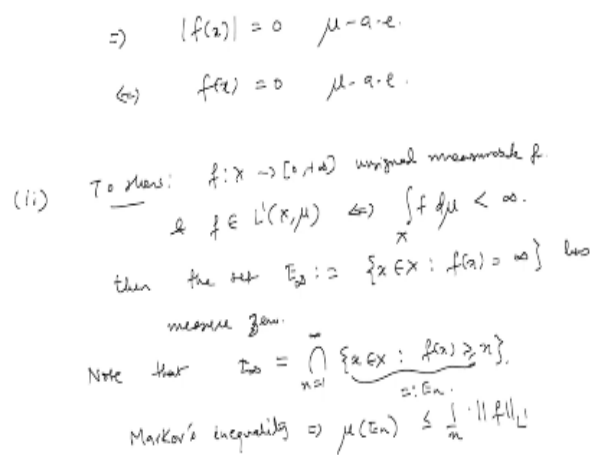 => |f(x)| = 0 μ-a.e.
<=> f(x) = 0 μ-a.e.
(ii) To show: f: X -> [0,+∞] unsigned measurable f.
& f ∈ L¹(X,μ) <=> ∫_X f dμ < ∞.
then the set E_∞ := {x ∈ X : f(x) = ∞} has
measure zero.
Note that E_∞ = ⋂_{n=1}^∞ {x ∈ X : f(x) ≥ n}.
=: E_n.
Markov's inequality => μ(E_n) ≤ 1/n · ||f||_{L¹}